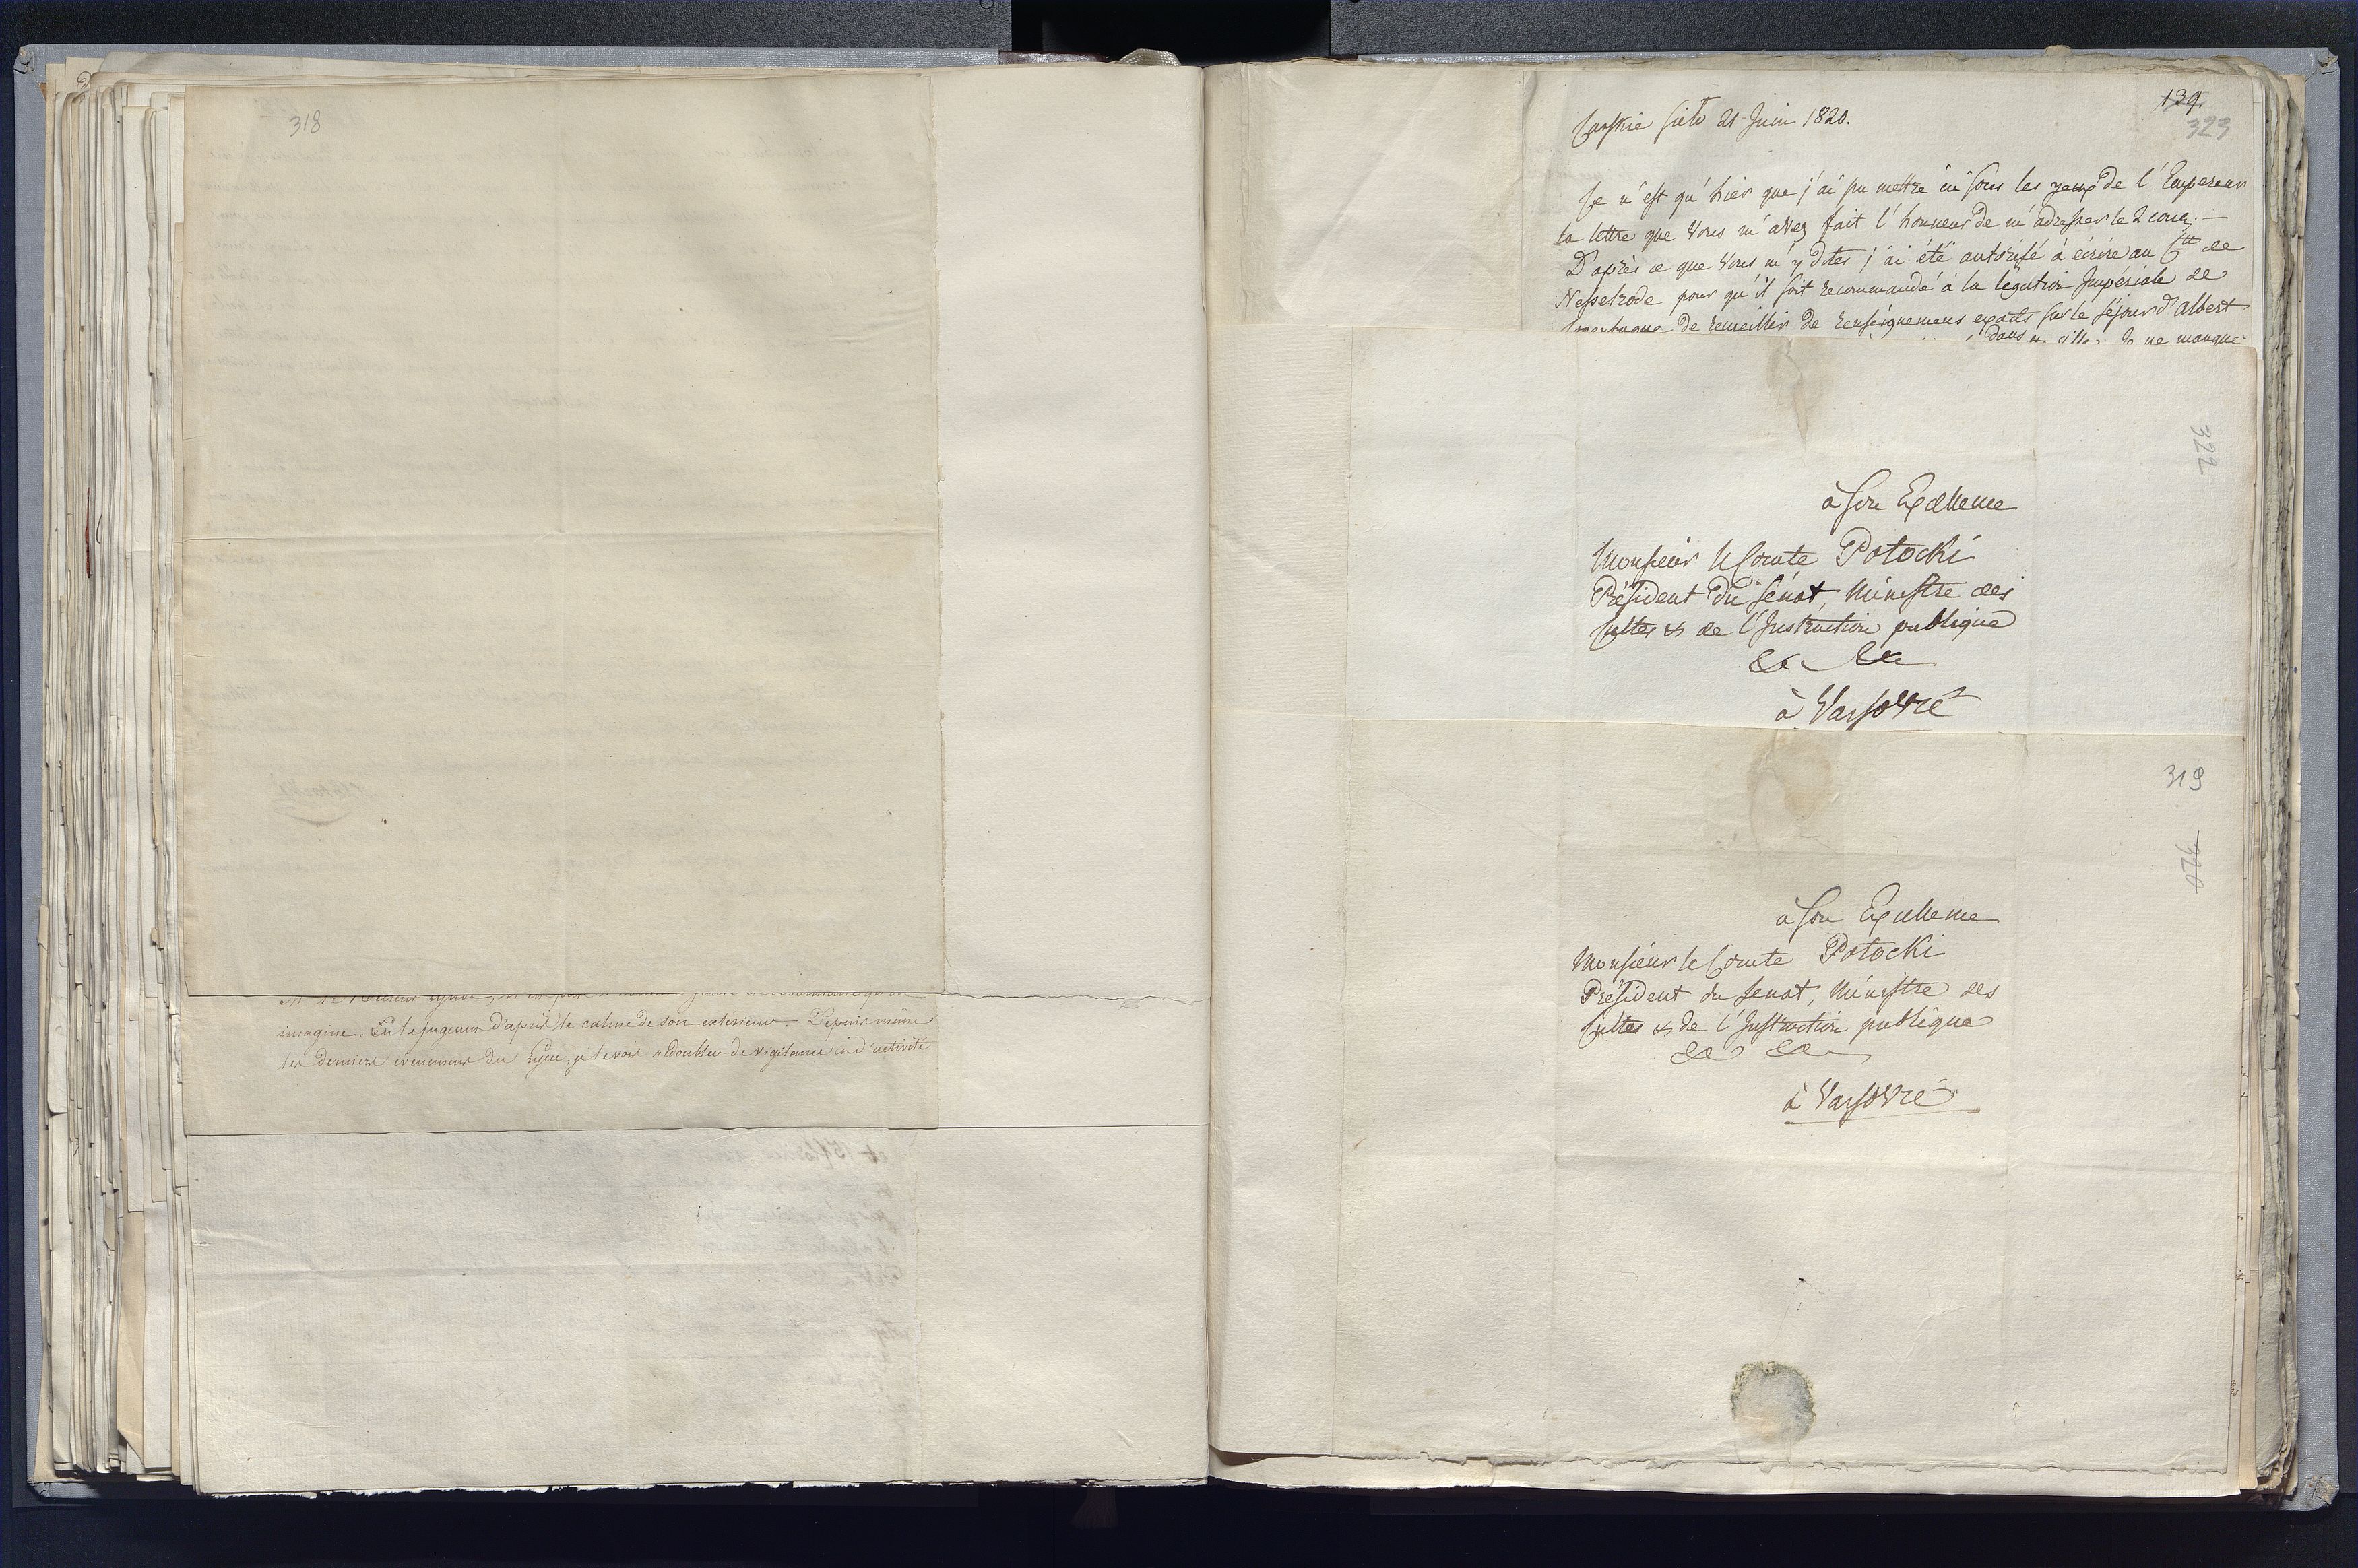 318
imagine. En le jugeant d'après le calme de son exterieur. Depuis même
les derniers évenemens du Lycée, je le vois redoubler de vigilance et d'activité
139.
323
Carskie Sielo 21 Juin 1820.
Ce n'est qu'hier que j'ai pu mettre sous les yeux de l'Empereur
la lettre que Vous m'avez fait l'honneur de m'adresser le 2 cour. –
D'après ce que Vous m'y dites j'ai été autorisé à écrire au Cte de
Nesselrode pour qu'il soit recommandé à la légation Impériale de
de recueillir de renseignemens exacts sur le séjour d'Albert
dans ne manque
322
à Son Excellence
Monsieur le Comte Potocki
Président du Sénat, Ministre des
Cultes & de l'Instruction publique
&c &c
à Varsovie
319
320
à Son Excellence
Monsieur le Comte Potocki
Président du Senat, Ministre des
Cultes & de l'Instruction publique
&c &c
à Varsovie